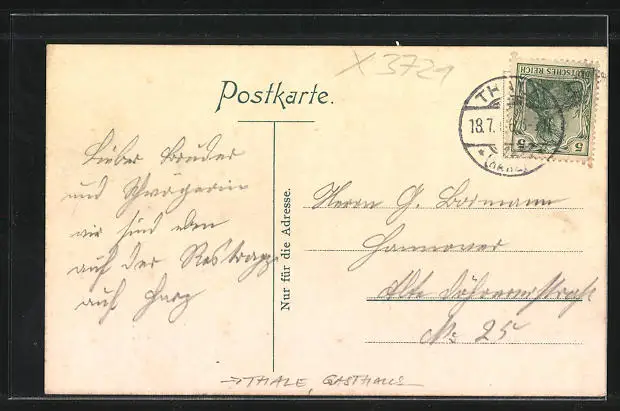 X 3729
Postkarte.
DEUTSCHES REICH
5 5
TH
18.7.
(HARZ)
Lieber Bruder
und Schwägerin
wir sind eben
auf der Rosstrappe
auf Harz
Nur für die Adresse.
Herrn G. Bormann
Hannover
Alte Döhrenerstraße
No 25
→ THALE, GASTHAUS